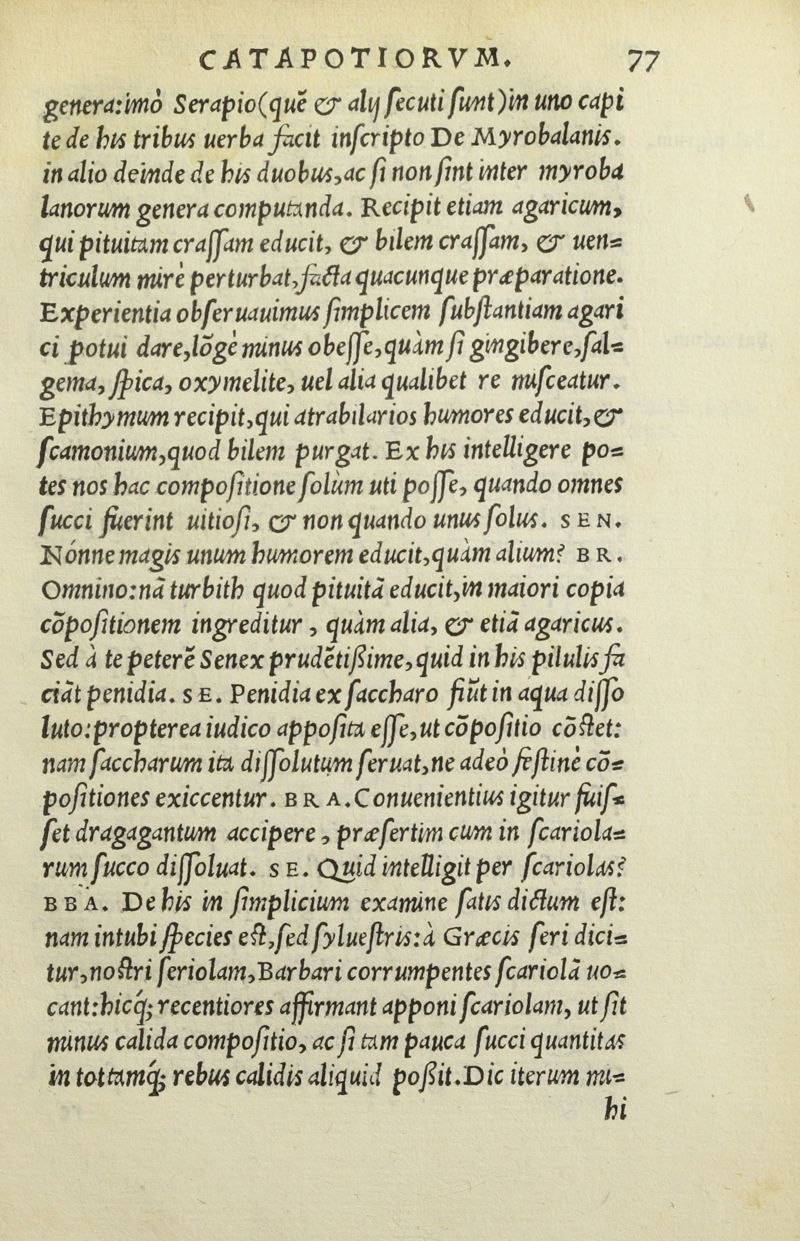 CATAPOTIORVM. 77
genera:imò Serapio(quẽ & alij ſecuti ſunt)in uno capi
te de his tribus uerba facit inſcripto De Myrobalanis.
in alio deinde de his duobus,ac ſi non ſint inter myroba
lanorum genera computanda. Recipit etiam agaricum,
qui pituitam craſſam educit, & bilem craſſam, & uen=
triculum mirè perturbat,facta quacunque præparatione.
Experientia obſeruauimus ſimplicem ſubſtantiam agari
ci potui dare,lõgè minus obeſſe,quàm ſi gingibere,ſal=
gema, ſpica, oxymelite, uel alia qualibet re miſceatur.
Epithymum recipit,qui atrabilarios humores educit,&
ſcamonium,quod bilem purgat. Ex his intelligere po=
tes nos hac compoſitione ſolùm uti poſſe, quando omnes
ſucci fuerint uitioſi, & non quando unus ſolus. SEN.
Nónne magis unum humorem educit,quàm alium? BR.
Omnino:nã turbith quod pituitã educit,in maiori copia
cõpoſitionem ingreditur , quàm alia, & etiã agaricus.
Sed à te peterẽ Senex prudẽtißime,quid in his pilulis fa
ciãt penidia. SE. Penidia ex ſaccharo fiũt in aqua diſſo
luto:propterea iudico appoſita eſſe,ut cõpoſitio cõſtet:
nam ſaccharum ita diſſolutum ſeruat,ne adeò feſtinè cõ=
poſitiones exiccentur. BRA.Conuenientius igitur fuiſ=
ſet dragagantum accipere , præſertim cum in ſcariola=
rum ſucco diſſoluat. SE. Quid intelligit per ſcariolas?
BBA. De his in ſimplicium examine ſatis dictum eſt:
nam intubi ſpecies eſt,ſed ſylueſtris:à Græcis ſeri dici=
tur,noſtri ſeriolam,Barbari corrumpentes ſcariolã uo=
cant:hicq́; recentiores affirmant apponi ſcariolam, ut ſit
minus calida compoſitio, ac ſi tam pauca ſucci quantitas
in tot tamq́; rebus calidis aliquid poßit.Dic iterum mi=
hi